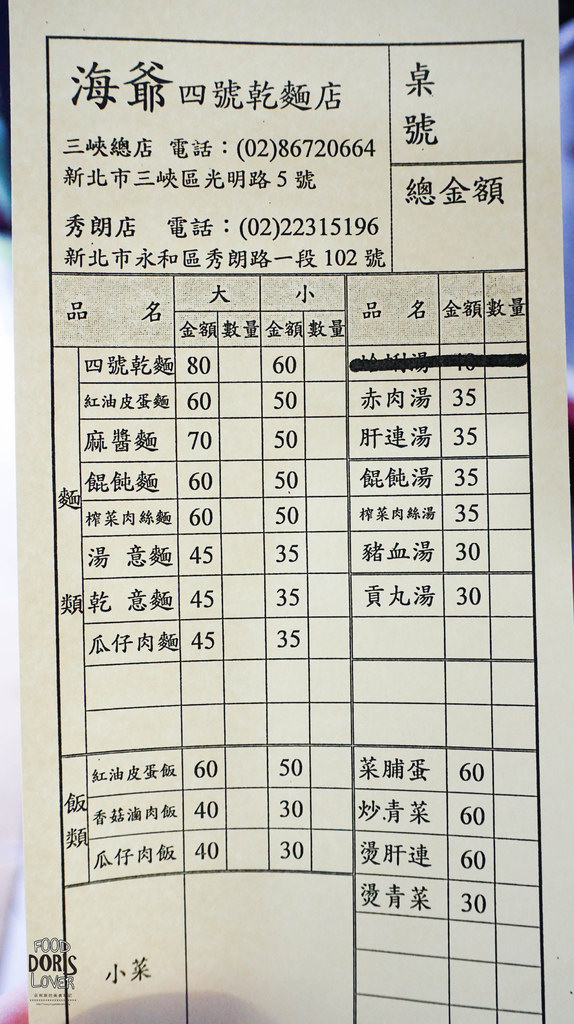 海爺 四號乾麵店
三峽總店 電話：(02)86720664
新北市三峽區光明路 5 號
秀朗店 電話：(02)22315196
新北市永和區秀朗路一段 102 號
桌號
總金額
品 名 大 小 品 名 金額 數量
金額 數量 金額 數量
麵類
四號乾麵 80 60
紅油皮蛋麵 60 50 赤肉湯 35
麻醬麵 70 50 肝連湯 35
餛飩麵 60 50 餛飩湯 35
榨菜肉絲麵 60 50 榨菜肉絲湯 35
湯 意麵 45 35 豬血湯 30
乾 意麵 45 35 貢丸湯 30
瓜仔肉麵 45 35
飯類
紅油皮蛋飯 60 50 菜脯蛋 60
香菇滷肉飯 40 30 炒青菜 60
瓜仔肉飯 40 30 燙肝連 60
燙青菜 30
小菜
FOOD
DORIS
LOVER